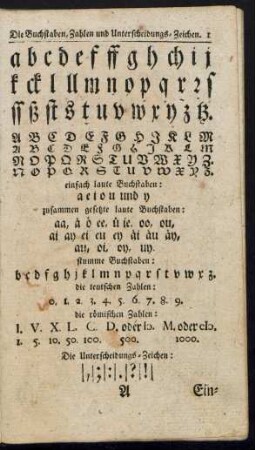 Die Buchstaben, Zahlen und Unterscheidungs-Zeichen. 1
a b c d e f ff g h ch i j
k ck l ll m n o p q r ꝛ ſ
ſſ ß ſt s t u v w x y z tz.
A B C D E F G H J K L M
A B C D E F G H J K L M
N O P Q R S T U V W X Y Z.
N O P Q R S T U V W X Y Z.
einfach laute Buchſtaben:
a e i o u und y
zuſammen geſetzte laute Buchſtaben:
aa, ä ö ee. ü ie. oo, ou,
ai ay ei eu ey äi äu äy,
au, oi, oy. uy.
ſtumme Buchſtaben:
b c d f g h j k l m n p q r ſ t v w x z.
die teutſchen Zahlen:
0. 1. 2. 3. 4. 5. 6. 7. 8. 9.
die römiſchen Zahlen:
I. V. X. L. C. D. oder IↃ. M. oder CIↃ.
1. 5. 10. 50. 100. 500. 1000.
Die Unterſcheidungs-Zeichen:
|,|;|:|.|?|!|
A Ein-